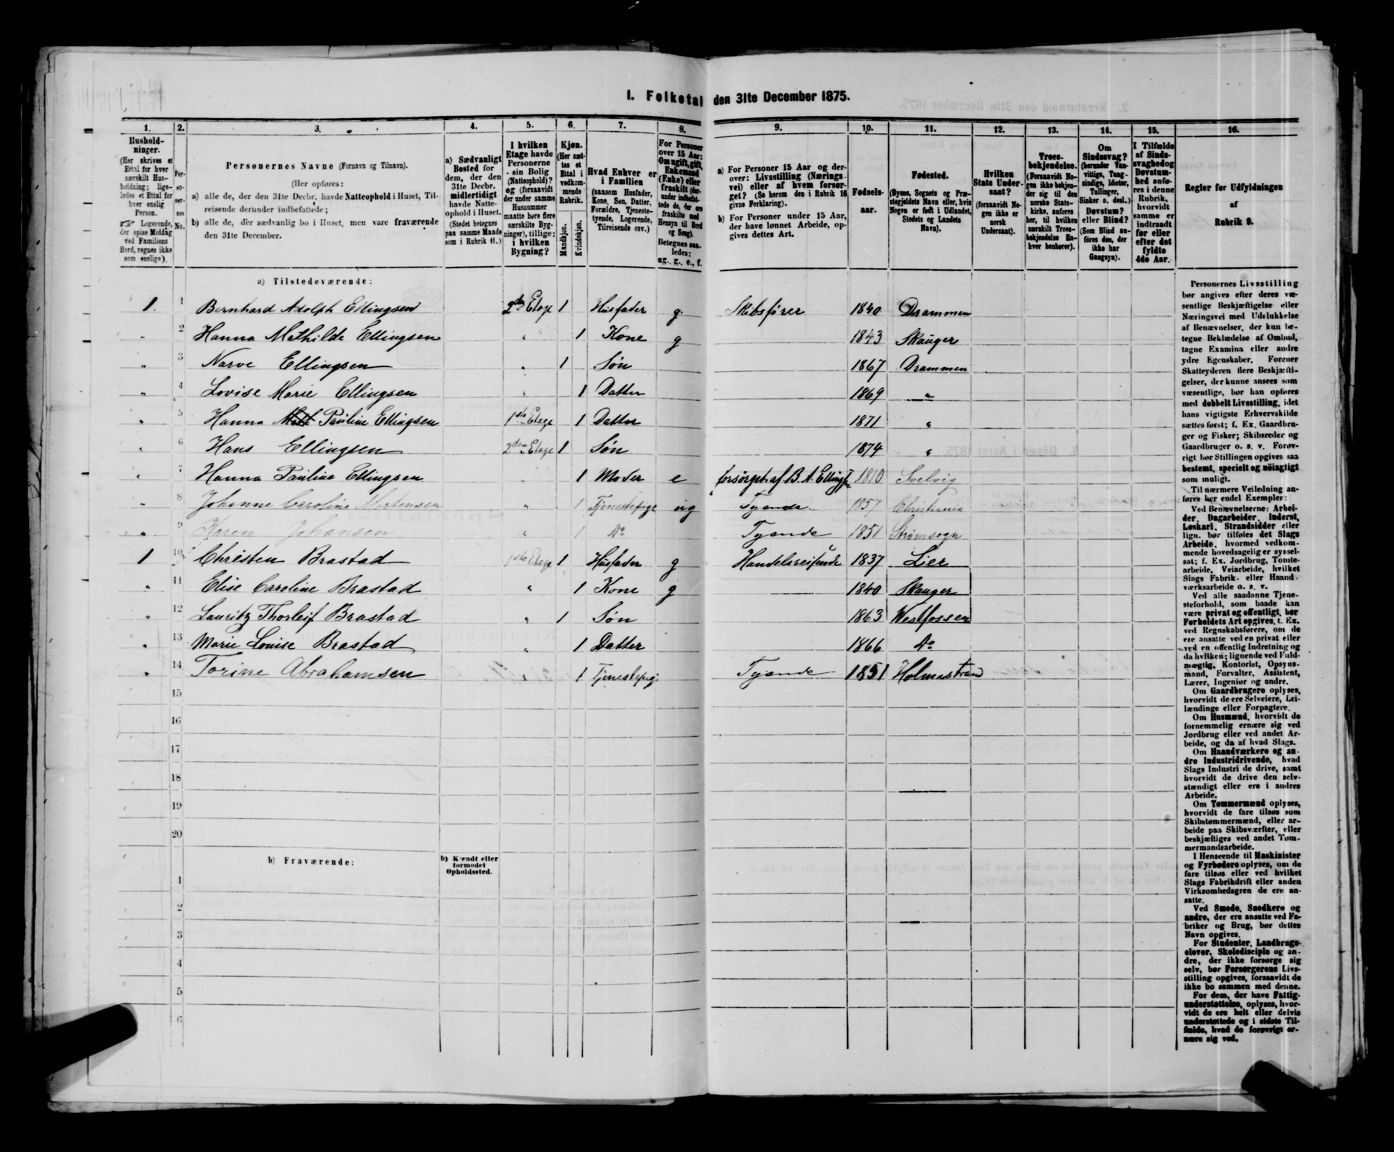 I. Folketal den 31te December 1875.
1. 2. 3. 4. 5. 6. 7. 8. 9. 10. 11. 12. 13. 14. 15. 16.
Hushold-
ninger.
(Her skrives et
Ettal for hver
særskilt Hus-
holdning; lige-
ledes et Ettal for
hver enslig
Person.
☞ Logerende,
der spise Middag
ved Familiens
Bord, regnes ikke
som enslige).
Per-
so-
ner-
nes
No.
Personernes Navne (Fornavn og Tilnavn).
(Her opføres:
a) alle de, der den 31te Decbr. havde Natteophold i Huset, Til-
reisende derunder indbefattede;
b) alle de, der sædvanlig bo i Huset, men vare fraværende
den 31te December.
a) Sædvanligt
Bosted for
dem, der den
31te Decbr.
midlertidigt
havde Natte-
ophold i Huset.
(Stedet betegnes
paa samme Maade
som i Rubrik 11.)
I hvilken
Etage havde
Personerne
sin Bolig
(Natteophold)?
og (forsaavidt
der under samme
Husnummer
maatte høre flere
særskilte Byg-
ninger), tillige:
i hvilken
Bygning?
Kjøn.
(Her sæt-
tes et
Ettal i
vedkom-
mende
Rubrik.
Mandkjøn.
Kvindekjøn.
Hvad Enhver er
i Familien
(saasom Husfader,
Kone, Søn, Datter,
Forældre, Tjeneste-
tyende, Logerende,
Tilreisende osv.)
For Personer
over 15 Aar:
Om ugift, gift,
Enkemand
(Enke) eller
fraskilt (for-
under indbefat-
tede de, der ere
fraskilte med
Hensyn til Bord
og Seng).
Betegnes saa-
ledes:
ug., g., e., f.
a) For Personer 15 Aar og der-
over: Livsstilling (Nærings-
vei) eller af hvem forsør-
get? (Se herom den i Rubrik 16
givne Forklaring).
b) For Personer under 15 Aar,
der have lønnet Arbeide, op-
gives dettes Art.
Fødsels-
aar.
Fødested.
(Byens, Sognets og Præ-
stegjeldets Navn eller, hvis
Nogen er født i Udlandet,
Stedets og Landets
Navn).
Hvilken
Stats Under-
saat?
(forsaavidt No-
gen ikke er
norsk
Undersaat).
Troes-
bekjendelse.
(Forsaavidt No-
gen ikke bekjen-
der sig til den
norske Stats-
kirke, anføres
her, til hvilken
særskilt Troes-
bekjendelse En-
hver henhører).
Om
Sindssvag?
(herunder Van-
vittige, Tung-
sindige, Idioter,
Tullinger,
Sinker o. desl.)
Døvstum?
eller Blind?
(Som Blind an-
føres den, der
ikke har
Gangsyn).
I Tilfælde
af Sinds-
svaghed og
Døvstum-
hed anfø-
res i denne
Rubrik,
hvorvidt
samme er
indtraadt
før eller
efter det
fyldte
4de Aar.
Regler for Udfyldningen
af
Rubrik 9.
a) Tilstedeværende:
1. 1 Bernhard Adolph Ellingsen 2den Etage 1 Husfader g Skibsfører 1840 Drammen
" 2 Hanna Mathilde Ellingsen " 1 Kone g 1843 Skauger
" 3 Narve Ellingsen " 1 Søn 1867 Drammen
" 4 Lovise Marie Ellingsen 1 Datter 1869 "
" 5 Hanna Pauline Ellingsen 1ste Etage 1 Datter 1871 "
" 6 Hans Ellingsen 2den Etage 1 Søn 1874 "
" 7 Hanna Pauline Ellingsen " 1 Moder e forsørget af B. A. Ellings 1810 Svelvig
" 8 Johanne Caroline Mortensen " Tjenestepige ug Tyende 1857 Christiania
" 9 Karen Johansen " Do Tyende 1851 Strømsogn
1 10 Christen Brastad 1ste Etage 1 Husfader g Handelsreisende 1837 Lier
" 11 Elise Caroline Brastad " 1 Kone g 1840 Skauger
" 12 Lauritz Thorleif Brastad " 1 Søn 1863 Westfossen
" 13 Marie Louise Brastad " 1 Datter 1866 Do
" 14 Torine Abrahamsen " 1 Tjenestepig Tyende 1851 Holmestrand
15
16
17
18
19
20
b) Fraværende:
b) Kjendt eller
formodet
Opholdssted.
1
2
3
4
5
6
Personernes Livsstilling
bør angives efter deres væ-
sentlige Beskjæftigelse eller
Næringsvei med Udelukkelse
af Benævnelser, der kun be-
tegne Beklædelse af Ombud,
tagne Examina eller andre
ydre Egenskaber. Forener
Skatteyderen flere Beskjæfti-
gelser, der kunne ansees som
væsentlige, bør han opføres
med dobbelt Livsstilling, idet
hans vigtigste Erhvervskilde
sættes først; f. Ex. Gaardbru-
ger og Fisker; Skibsreder og
Gaardbruger o. s. v. Forøv-
rigt bør Stillingen opgives saa
bestemt, specielt og nøiagtigt
som muligt.
Til nærmere Veiledning an-
føres her endel Exempler:
Ved Benævnelserne: Arbei-
der, Dagarbeider, Inderst,
Løskarl, Strandsidder eller
lign. bør tilføies det Slags
Arbeide, hvormed vedkom-
mende hovedsagelig er syssel-
sat; f. Ex. Jordbrug, Tomte-
arbeide, Veiarbeide, hvilket
Slags Fabrik- eller Haand-
værksarbeide o. s. v.
Ved alle saadanne Tjene-
steforhold, som baade kan
være privat og offentligt, bør
Forholdets Art opgives, f. Ex.
ved Regnskabsførere, om de
ere ansatte ved en privat eller
ved en offentlig Indretning og
da hvilken; lignende ved Fuld-
mægtig, Kontorist, Opsyns-
mand, Forvalter, Assistent,
Lærer, Ingeniør og andre.
Om Gaardbrugere oplyses,
hvorvidt de ere Selveiere, Lei-
lændinge eller Forpagtere.
Om Husmænd, hvorvidt de
fornemmelig ernære sig ved
Jordbrug eller ved andet Ar-
beide, og da af hvad Slags.
Om Haandværkere og an-
dre Industridrivende, hvad
Slags Industri de drive, samt
hvorvidt de drive den selv-
stændigt eller ere i andres
Arbeide.
Om Tømmermænd oplyses,
hvorvidt de fare tilsøs som
Skibstømmermænd, eller ar-
beide paa Skibsværfter, eller
beskjæftiges ved andet Tøm-
mermandsarbeide.
I Henseende til Maskinister
og Fyrbødere oplyses, om de
fare tilsøs eller ved hvilket
Slags Fabrikdrift eller anden
Virksomhedsgren de ere an-
satte.
Ved Smede, Snedkere og
andre, der ere ansatte ved Fa-
briker og Brug, bør dettes
Navn opgives.
For Studenter, Landbrugs-
elever, Skoledisciple og an-
dre, der ikke forsørge sig
selv, bør Forsørgerens Livs-
stilling opgives, forsaavidt de
ikke bo sammen med denne.
For dem, der have Fattig-
understøttelse, oplyses, hvor-
vidt de ere helt eller delvis
understøttede og i sidste Til-
fælde, hvad de forøvrigt er-
nære sig ved.